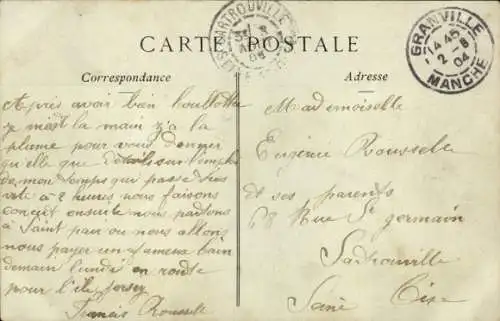 CARTE POSTALE
SARTROUVILLE
GRANVILLE
14 45
2-8
04
MANCHE
Correspondance
Adresse
Après avoir bien boullotté
je mest la main z'a la
plume pour vous donner
quelle que détails sur l'emploi
de mon temps qui passe très
vite à 2 heures nous faisons
concert ensuite nous partons
à Saint pair ou nous allons
nous payer un fameux bain
demain lundi en route
pour l'île Jersey
Francis Roussell
Mademoiselle
Eugénie Rousselle
et ses parents
68 Rue St germain
Satrouville
Seine Oise